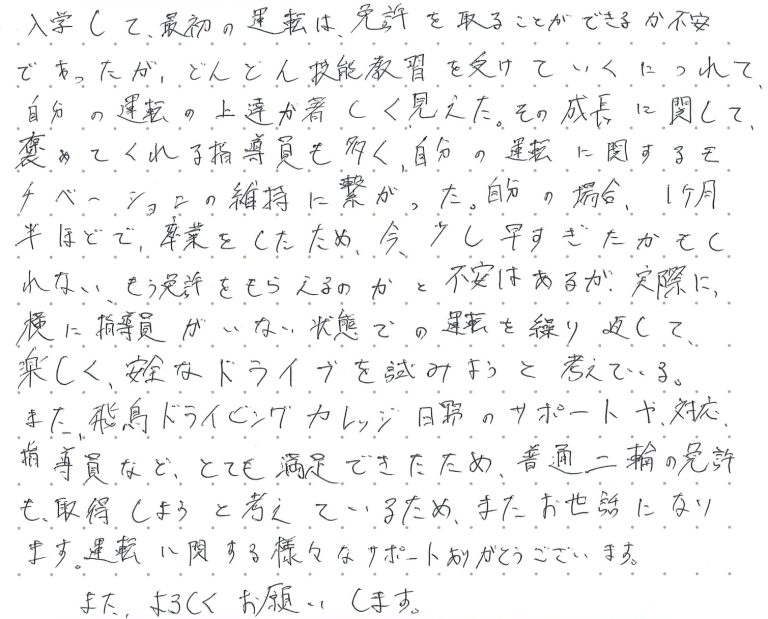 入学して、最初の運転は、免許を取ることができるか不安
であったが、どんどん技能教習を受けていくにつれて、
自分の運転の上達が著しく見えた。その成長に関して、
褒めてくれる指導員も多く、自分の運転に関するモ
チベーションの維持に繋がった。自分の場合、1ヶ月
半ほどで、卒業をしたため、今、少し早すぎたかもし
れない、もう免許をもらえるのかと不安はあるが、実際に、
横に指導員がいない状態での運転を繰り返して、
楽しく、安全なドライブを試みようと考えている。
また、飛鳥ドライビングカレッジ日野のサポートや、対応、
指導員など、とても満足できたため、普通二輪の免許
も、取得しようと考えているため、またお世話になり
ます。運転に関する様々なサポートありがとうございます。
また、よろしくお願いします。